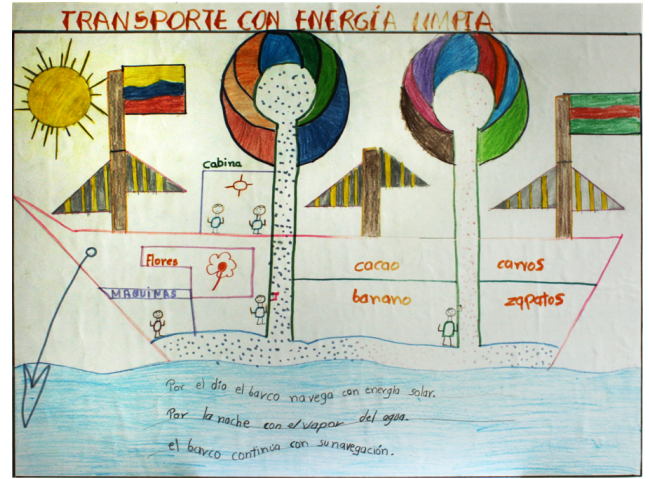 TRANSPORTE CON ENERGÍA LIMPIA
Cabina
Flores
MAQUINAS
cacao
carros
banano
zapatos
Por el día el barco navega con energía solar.
Por la noche con el vapor del agua.
el barco continúa con su navegación.